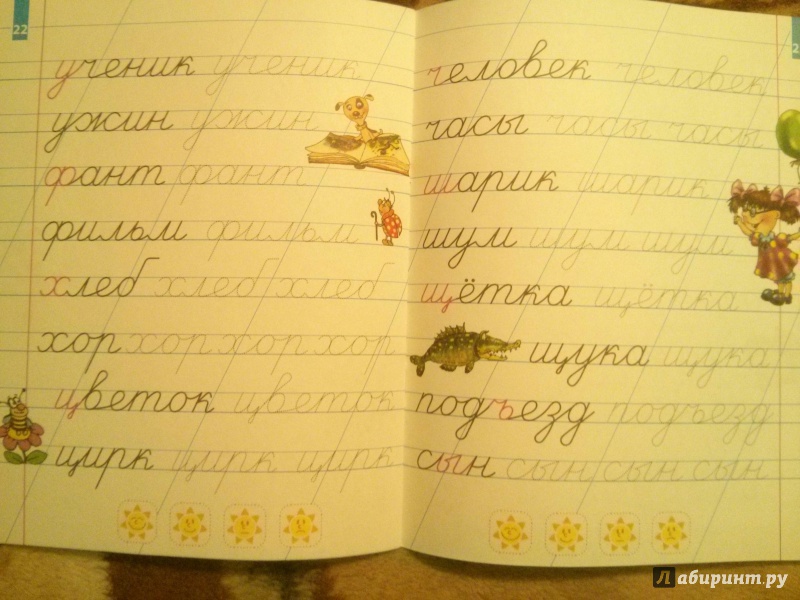 22
ученик ученик
ужин ужин
фант фант
фильм фильм
хлеб хлеб хлеб
хор хор хор хор
цветок цветок
цирк цирк цирк
человек человек
часы часы часы
шарик шарик
шум шум шум
щётка щётка
щука щука
подъезд подъезд
сын сын сын сын
Лабиринт.ру